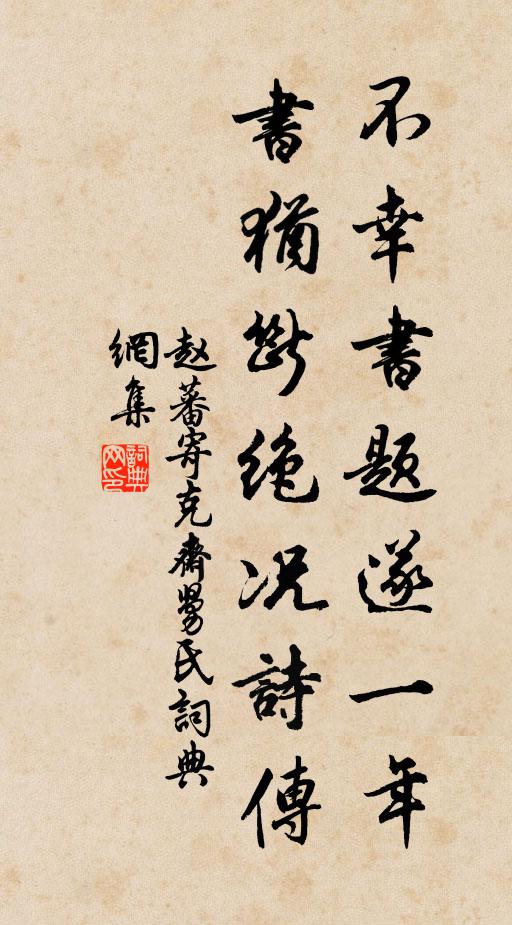 不幸書題遂一年
書猶斷絶況詩傳
赵蕃寄克齋舅氏詞典
網集
詞典網印